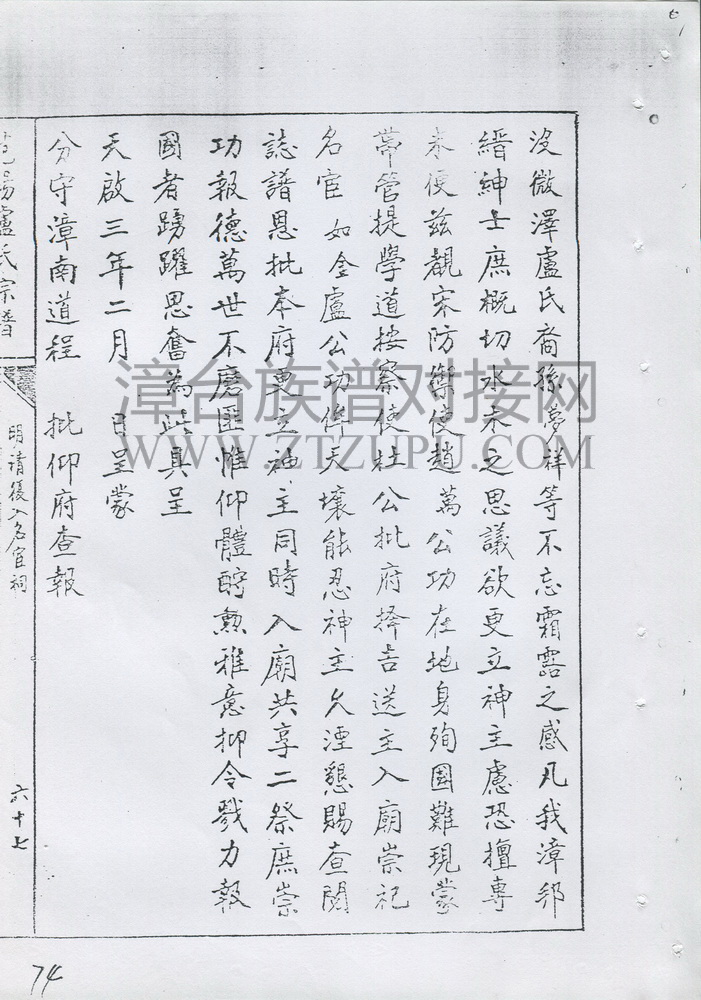 没微澤盧氏裔孫夢祥等不忘霜露之感凡我漳邦
縉紳士庶概切水木之思議欲更立神主慮恐擅專
未便茲覩宋防禦使趙萬公功在地身殉國難現蒙
帶管提學道按察使杜公批府擇吉送主入廟崇祀
名宦 如金盧公功侔天壤能忍神主久湮懇賜查閱
誌譜恩批本府更立神主同時入廟共享二祭庶崇
功報德萬世不磨匪惟仰體酧勲雅意抑令戮力報
國者踴躍思奮為此具呈
天啟三年二月 日呈蒙
分守漳南道程 批仰府查報
盧氏宗譜
明請復入名宦祠
六十七
74
漳台族谱对接网
WWW.ZTZUPU.COM